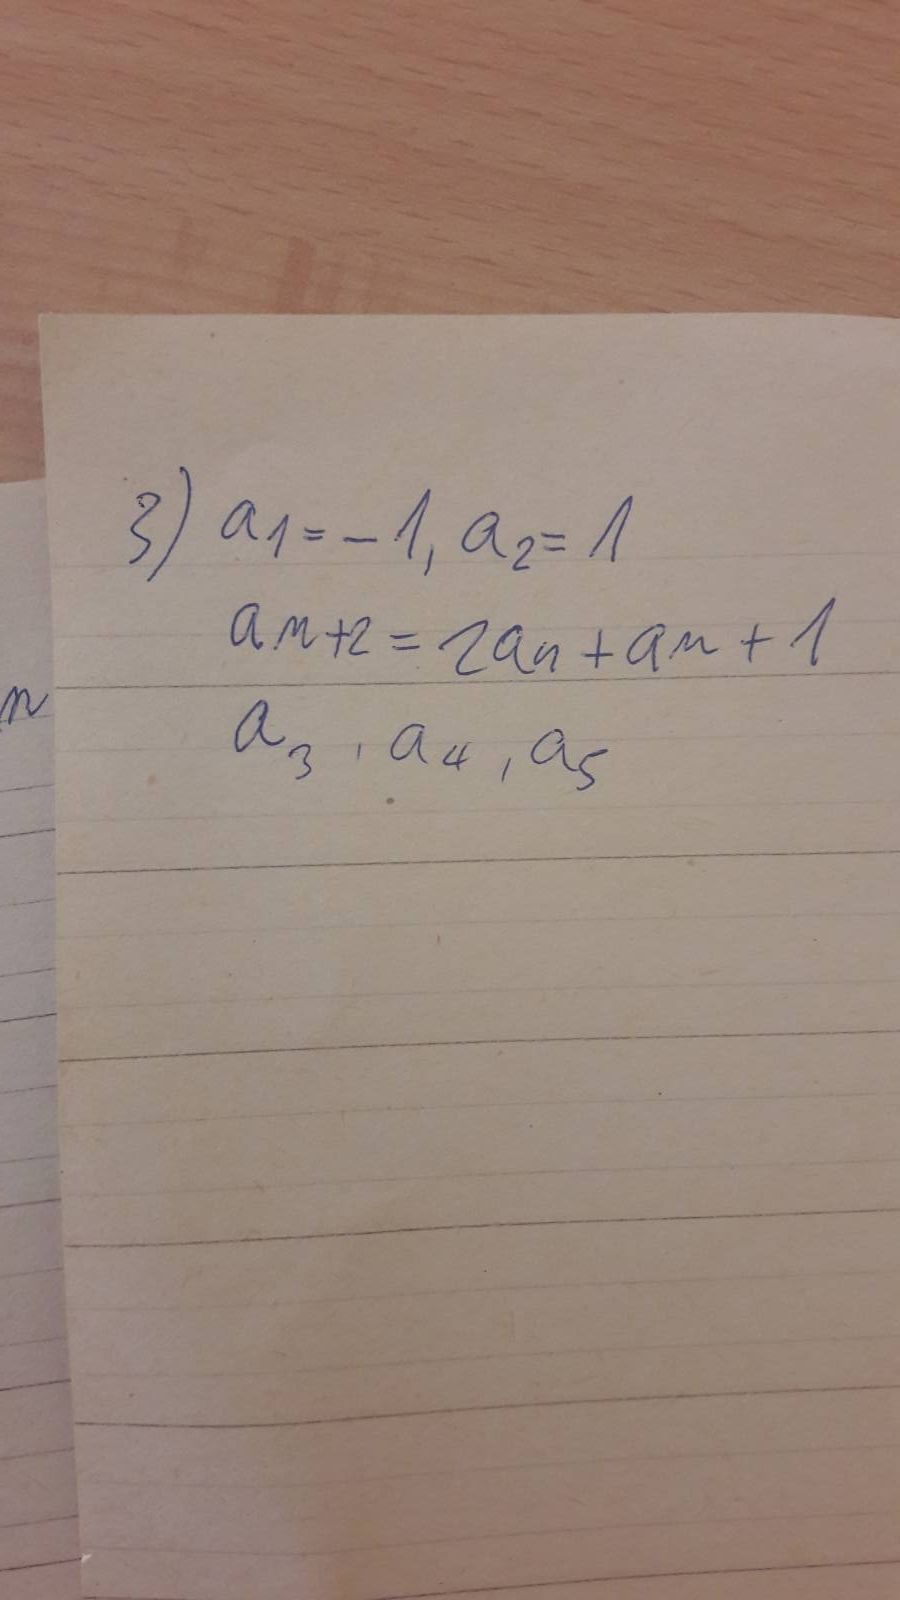 3) a1=-1, a2=1
an+2=2an+an+1
a3, a4, a5
n